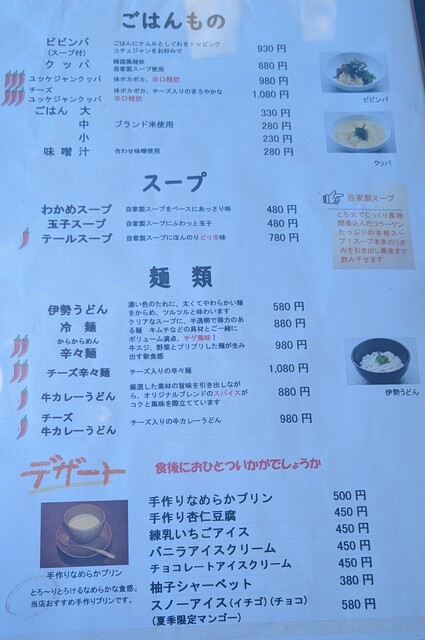 ごはんもの
ビビンバ
(スープ付)
ごはんにナムルとしぐれをトッピング
コチュジャンをお好みで
930 円
クッパ
韓国風雑炊
自家製スープ使用
880 円
ユッケジャンクッパ 体ポカポカ、辛口雑炊 980 円
チーズ
ユッケジャンクッパ
体ポカポカ、チーズ入りのまろやかな
辛口雑炊
1,080 円
ごはん 大 330 円
中 ブランド米使用 280 円
小 230 円
味噌汁 合わせ味噌使用 280 円
ビビンバ
クッパ
スープ
わかめスープ 自家製スープをベースにあっさり味 480 円
玉子スープ 自家製スープにふわっと玉子 480 円
テールスープ 自家製スープにほんのりピリ辛味 780 円
自家製スープ
とろ火でじっくり長時
間煮込んだコラーゲン
たっぷりの本格スー
プ！スープ本来のうま
みを引き出し最後まで
飲み干せます
麺類
伊勢うどん
濃い色のたれに、太くてやわらかい麺
をからめ、ツルツルと味わいます
580 円
冷麺
クリアなスープに、半透明で弾力のあ
る麺 キムチなどの具材とご一緒に
880 円
からからめん
辛々麺
ボリューム満点、チゲ風味！
牛スジ、野菜とプリプリした麺が生み
出す新食感
980 円
チーズ辛々麺 チーズ入りの辛々麺 1,080 円
牛カレーうどん
厳選した素材の旨味を引き出しなが
ら、オリジナルブレンドのスパイスが
コクと風味を際立てています
880 円
チーズ
牛カレーうどん
チーズ入りの牛カレーうどん 980 円
伊勢うどん
デザート 食後におひとついかがでしょうか
手作りなめらかプリン 500 円
手作り杏仁豆腐 450 円
練乳いちごアイス 450 円
バニラアイスクリーム 450 円
チョコレートアイスクリーム 450 円
柚子シャーベット 380 円
スノーアイス(イチゴ)(チョコ) 580 円
(夏季限定マンゴー)
手作りなめらかプリン
とろ～りとろけるなめらかな食感。
当店おすすめ手作りプリンです。